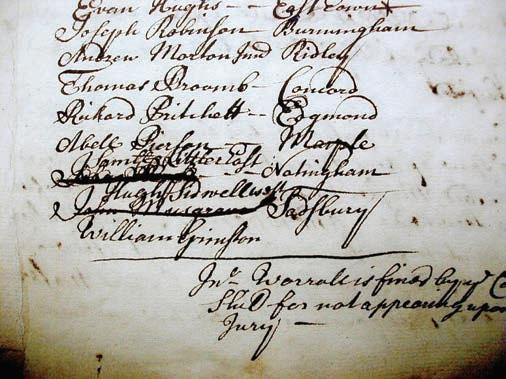 Evan Hughs -- East Town
Joseph Robinson Burmingham
Andrew Morton Junr Ridley
Thomas Broomb - Concord
Richard Pritchett - Edgmond
Abell Pierson Marple
East - Notingham
Hugh Sidwell west
Sadsbury
William Grimson
Jno Worrall is fined by ye
for not appearing upon
Jury -